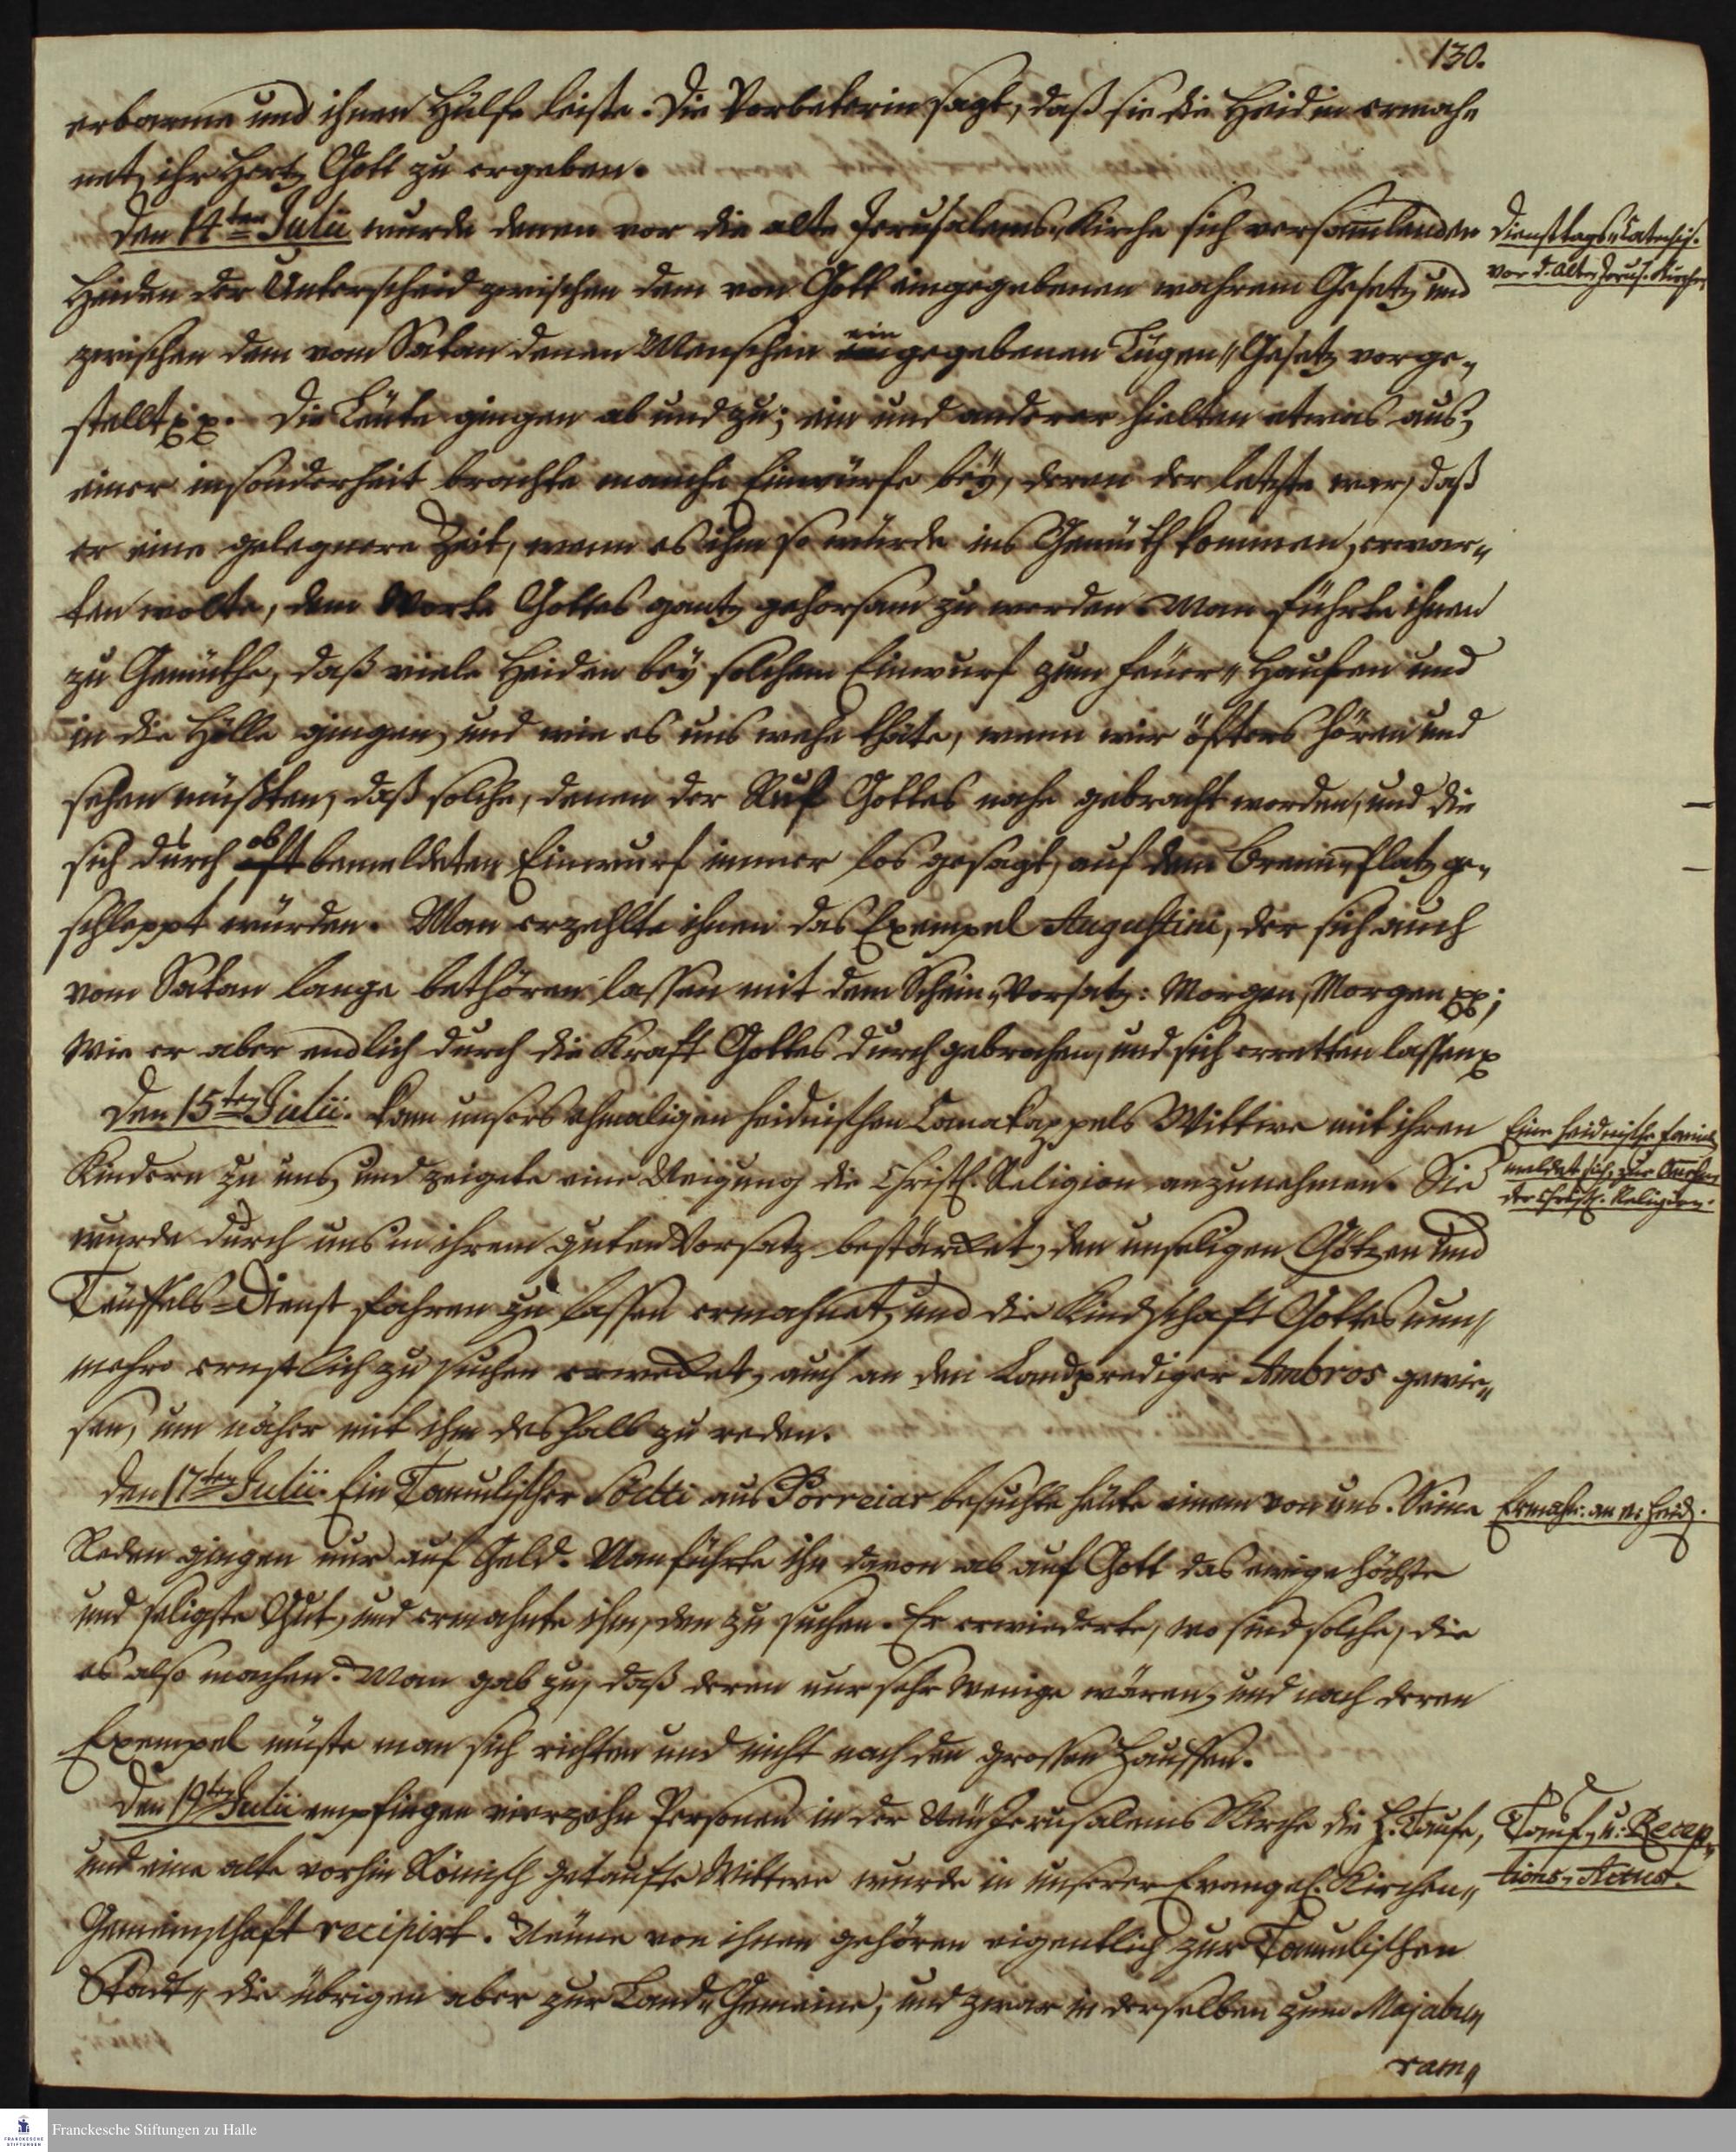 130.
erbarme und ihnen Hülfe leiste. Die Vorbeterin sagt, daß sie die Heidin ermah-
net, ihr Hertz Gott zu ergeben.
Den 14ten Julii wurde denen vor die alte Jerusalems-Kirche sich versamlenden
Dienstags-Catechis.
vor d. Alten Jerus. Kirche
Heiden der Unterscheid zwischen dem von Gott eingegebenen wahrem Gesetz und
zwischen dem vom Satan denen Menschen ein gegebenen Lügen-Gesetz vorge-
stellt pp. Die Leute gingen ab und zu; ein und anderer hielten etwas aus;
einer insonderheit brachte manche Einwürfe bey, deren der letzte war, daß
er eine gelegnere Zeit, wenn es ihm so würde ins Gemüth kommen, erwar-
ten wolte, dem Worte Gottes gantz gehorsam zu werden. Man führte ihnen
zu Gemüthe, daß viele Heiden bey solchem Einwurf zum Feuer-Haufen und
in die Hölle gingen, und wie es uns wehe thäte, wenn wir öfters hören und
sehen müsten, daß solche, denen der Ruf Gottes nahe gebracht worden, und die
sich durch ob bemeldeten Einwurf immer los gesagt, auf dem Brenn-Platz ge-
schleppt würden. Man erzehlte ihnen das Exempel Augustini, der sich auch
vom Satan lange bethören lassen mit dem Schein-Vorsatz: Morgen, Morgen pp;
wie er aber endlich durch die Kraft Gottes durchgebrochen, und sich erretten lassen p
Den 15ten Julii. kam unsers ehmaligen heidnischen Canakappels Wittwe mit ihren
Eine heidnische Famil.
meldet sich zur Annehm
der Christl. Religion.
Kindern zu uns, und zeigete eine Neigung die Christl. Religion anzunehmen. Sie
wurde durch uns in ihrem guten Vorsatz bestärcket, den unseligen Götzen und
Teuffels-Dienst fahren zu lassen ermahnet, und die Kindschaft Gottes nun-
mehro ernstlich zu suchen erwecket, auch an den Landprediger Ambros gewie-
sen, um näher mit ihm deshalb zu reden.
Den 17ten Julii. Ein Tamulischer Söitti aus Porreiar besuchte heute einem von uns. Seine
Ermahn. an ei. Heid.
Reden gingen nur auf Geld. Man führte ihn davon ab auf Gott das ewige höchste
und seligste Gut, und ermahnte ihm, den zu suchen. Er erwiederte, wo sind solche, die
es also machen. Man gab zu, daß deren nur sehr wenige wären, und nach deren
Exempel müste man sich richten und nicht nach den grossen Hauffen.
Den 19ten Julii empfingen vierzehn Personen in der Neu Jerusalems Kirche die H. Taufe,
Tauf- u. Recep-
tions-Actus.
und eine alte vorhin Römisch getaufte Wittwe wurde in unserer Evangel. Kirchen-
Gemeinschaft recipirt. Neune von ihnen gehören eigentlich zur Tamulischen
Stadt- die übrigen aber zur Land-Gemeine, und zwar in derselben zum Majabu-
ram-
Franckesche Stiftungen zu Halle